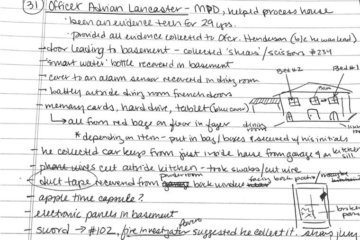 31) Officer Adrian Lancaster - MPD, helped process house
- been an evidence tech for 29 yrs.
- provided all evidence collected to Ofcr. Henderson (b/c he was lead)
- door leading to basement - collected "shears"/scissors #234
- "smart water" bottle recovered in basement
- cover to an alarm sensor recovered in dining room
- battery outside dining room french doors
- memory cards, hard drive, tablet (blue cover)
→ all from red bags on floor in foyer dining room
* depending on item - put in bag/boxes & secured w/ his initials
- he collected car keys from just inside house from garage & on kitchen sill
- phone wires cut outside kitchen - took swabs/cut wire
- duct tape recovered from back window facing back patio
- apple time capsule?
- electronic panels in basement
- sword → #102, fire investigator suggested he collect it.
Bed #2
Bed #1
broken